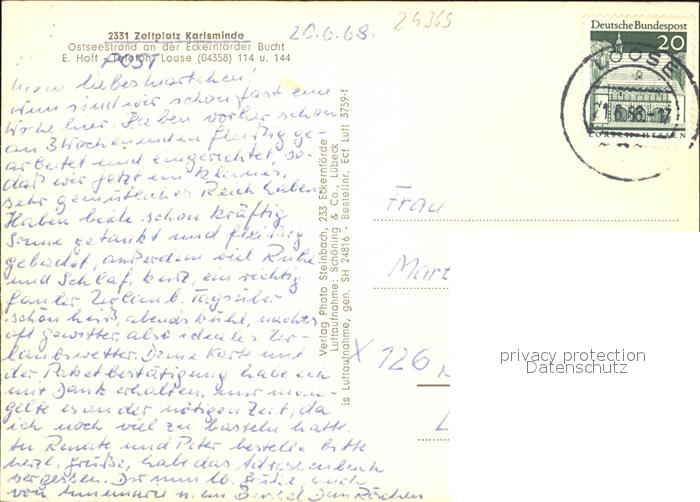 2331 Zeltplatz Karlsminde
Ostseestrand an der Eckernförder Bucht
E. Hoff - Telefon: Loose (04358) 114 u. 144
POST
20.6.68.
24365
Mein liebes
nun sind wir schon fast eine
Woche hier. Haben vorher schon
an 3 Wochenenden fleißig ge-
arbeitet und eingerichtet, so-
daß wir jetzt ein kleines,
sehr gemütliches Reich haben.
Haben beide schon kräftig
Sonne getankt und fleißig
gebadet, außerdem viel Ruhe
und Schlaf, kurz, ein richtig
fauler Urlaub. Tagsüber
schön heiß, abends kühl, nachts
oft Gewitter, also ideales Ur-
laubswetter. Deine Karte mit
der Paketbestätigung habe ich
mit Dank erhalten, nur man-
gelte es an der nötigen Zeit, da
ich noch viel zu basteln hatte.
An Renate und Peter bestelle bitte
herzl. Grüße, habe das Adressenbuch
vergessen. Dir nun lb. Grüße, auch
von Annemarie u. ein
Verlag Photo Steinbach, 233 Eckernförde
Luftaufnahme: Schöning & Co., Lübeck
als Luftaufnahme, gen. SH 24816 - Bestellnr. Ecf Luft 3759-f
Deutsche Bundespost
20
LORSCH/HESSEN
LOOSE
Frau
Mart
X 126
privacy protection
Datenschutz